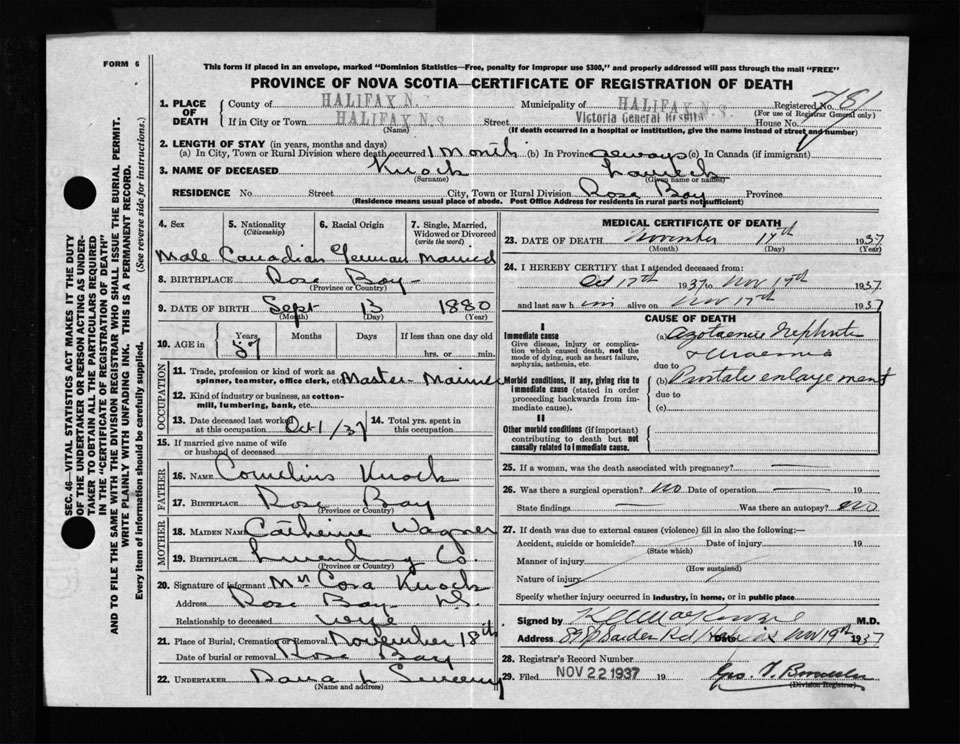 FORM 6
This form if placed in an envelope, marked "Dominion Statistics—Free, penalty for improper use $300," and properly addressed will pass through the mail "FREE"
PROVINCE OF NOVA SCOTIA—CERTIFICATE OF REGISTRATION OF DEATH
1. PLACE OF DEATH
County of HALIFAX N.S. Municipality of HALIFAX N.S. Registered No. 781
(For use of Registrar General only)
If in City or Town HALIFAX N.S. Street Victoria General Hospital House No.
(Name) (If death occurred in a hospital or institution, give the name instead of street and number)
2. LENGTH OF STAY (in years, months and days)
(a) In City, Town or Rural Division where death occurred 1 Month (b) In Province always (c) In Canada (if immigrant)
3. NAME OF DECEASED Knock
(Surname) (Given name or names)
RESIDENCE No. Street City, Town or Rural Division Rose Bay Province
(Residence means usual place of abode. Post Office Address for residents in rural parts not sufficient)
4. Sex 5. Nationality (Citizenship) 6. Racial Origin 7. Single, Married, Widowed or Divorced (write the word)
Male Canadian German Married
8. BIRTHPLACE Rose Bay
(Province or Country)
9. DATE OF BIRTH Sept 13 1880
(Month) (Day) (Year)
10. AGE in Years Months Days If less than one day old
57 hrs. or min.
OCCUPATION
11. Trade, profession or kind of work as spinner, teamster, office clerk, etc. Master Mariner
12. Kind of industry or business, as cotton-mill, lumbering, bank, etc.
13. Date deceased last worked at this occupation Oct 1/37 14. Total yrs. spent in this occupation
15. If married give name of wife or husband of deceased
FATHER
16. NAME Cornelius Knock
17. BIRTHPLACE Rose Bay
(Province or Country)
MOTHER
18. MAIDEN NAME Catherine Wagner
19. BIRTHPLACE Lunenburg Co.
(Province or Country)
20. Signature of informant Mrs Cora Knock
Address Rose Bay N.S.
Relationship to deceased wife
21. Place of Burial, Cremation or Removal November 18th
Date of burial or removal Rose Bay
22. UNDERTAKER Sweeny
(Name and address)
MEDICAL CERTIFICATE OF DEATH
23. DATE OF DEATH November 17th 1937
(Month) (Day) (Year)
24. I HEREBY CERTIFY that I attended deceased from:
Oct 17th 1937 to Nov 17th 1937
and last saw him alive on Nov 17th 1937
CAUSE OF DEATH
I
Immediate cause
Give disease, injury or complication which caused death, not the mode of dying, such as heart failure, asphyxia, asthenia, etc.
(a) Azotaemic Nephritis
& Uraemia
due to
Morbid conditions, if any, giving rise to immediate cause (stated in order proceeding backwards from immediate cause).
(b) Prostatic enlargement
due to
(c)
II
Other morbid conditions (if important) contributing to death but not causally related to immediate cause.
25. If a woman, was the death associated with pregnancy? —
26. Was there a surgical operation? No Date of operation — 19
State findings — Was there an autopsy? No
27. If death was due to external causes (violence) fill in also the following:—
Accident, suicide or homicide? Date of injury 19
(State which)
Manner of injury
(How sustained)
Nature of injury
Specify whether injury occurred in industry, in home, or in public place
Signed by M.D.
Address Nov 19th 1937
28. Registrar's Record Number
29. Filed NOV 22 1937 19
(Division Registrar)
SEC. 46—VITAL STATISTICS ACT MAKES IT THE DUTY
OF THE UNDERTAKER OR PERSON ACTING AS UNDER-
TAKER TO OBTAIN ALL THE PARTICULARS REQUIRED
IN THE "CERTIFICATE OF REGISTRATION OF DEATH"
AND TO FILE THE SAME WITH THE DIVISION REGISTRAR WHO SHALL ISSUE THE BURIAL PERMIT.
WRITE PLAINLY WITH UNFADING INK. THIS IS A PERMANENT RECORD.
Every item of information should be carefully supplied. (See reverse side for instructions.)